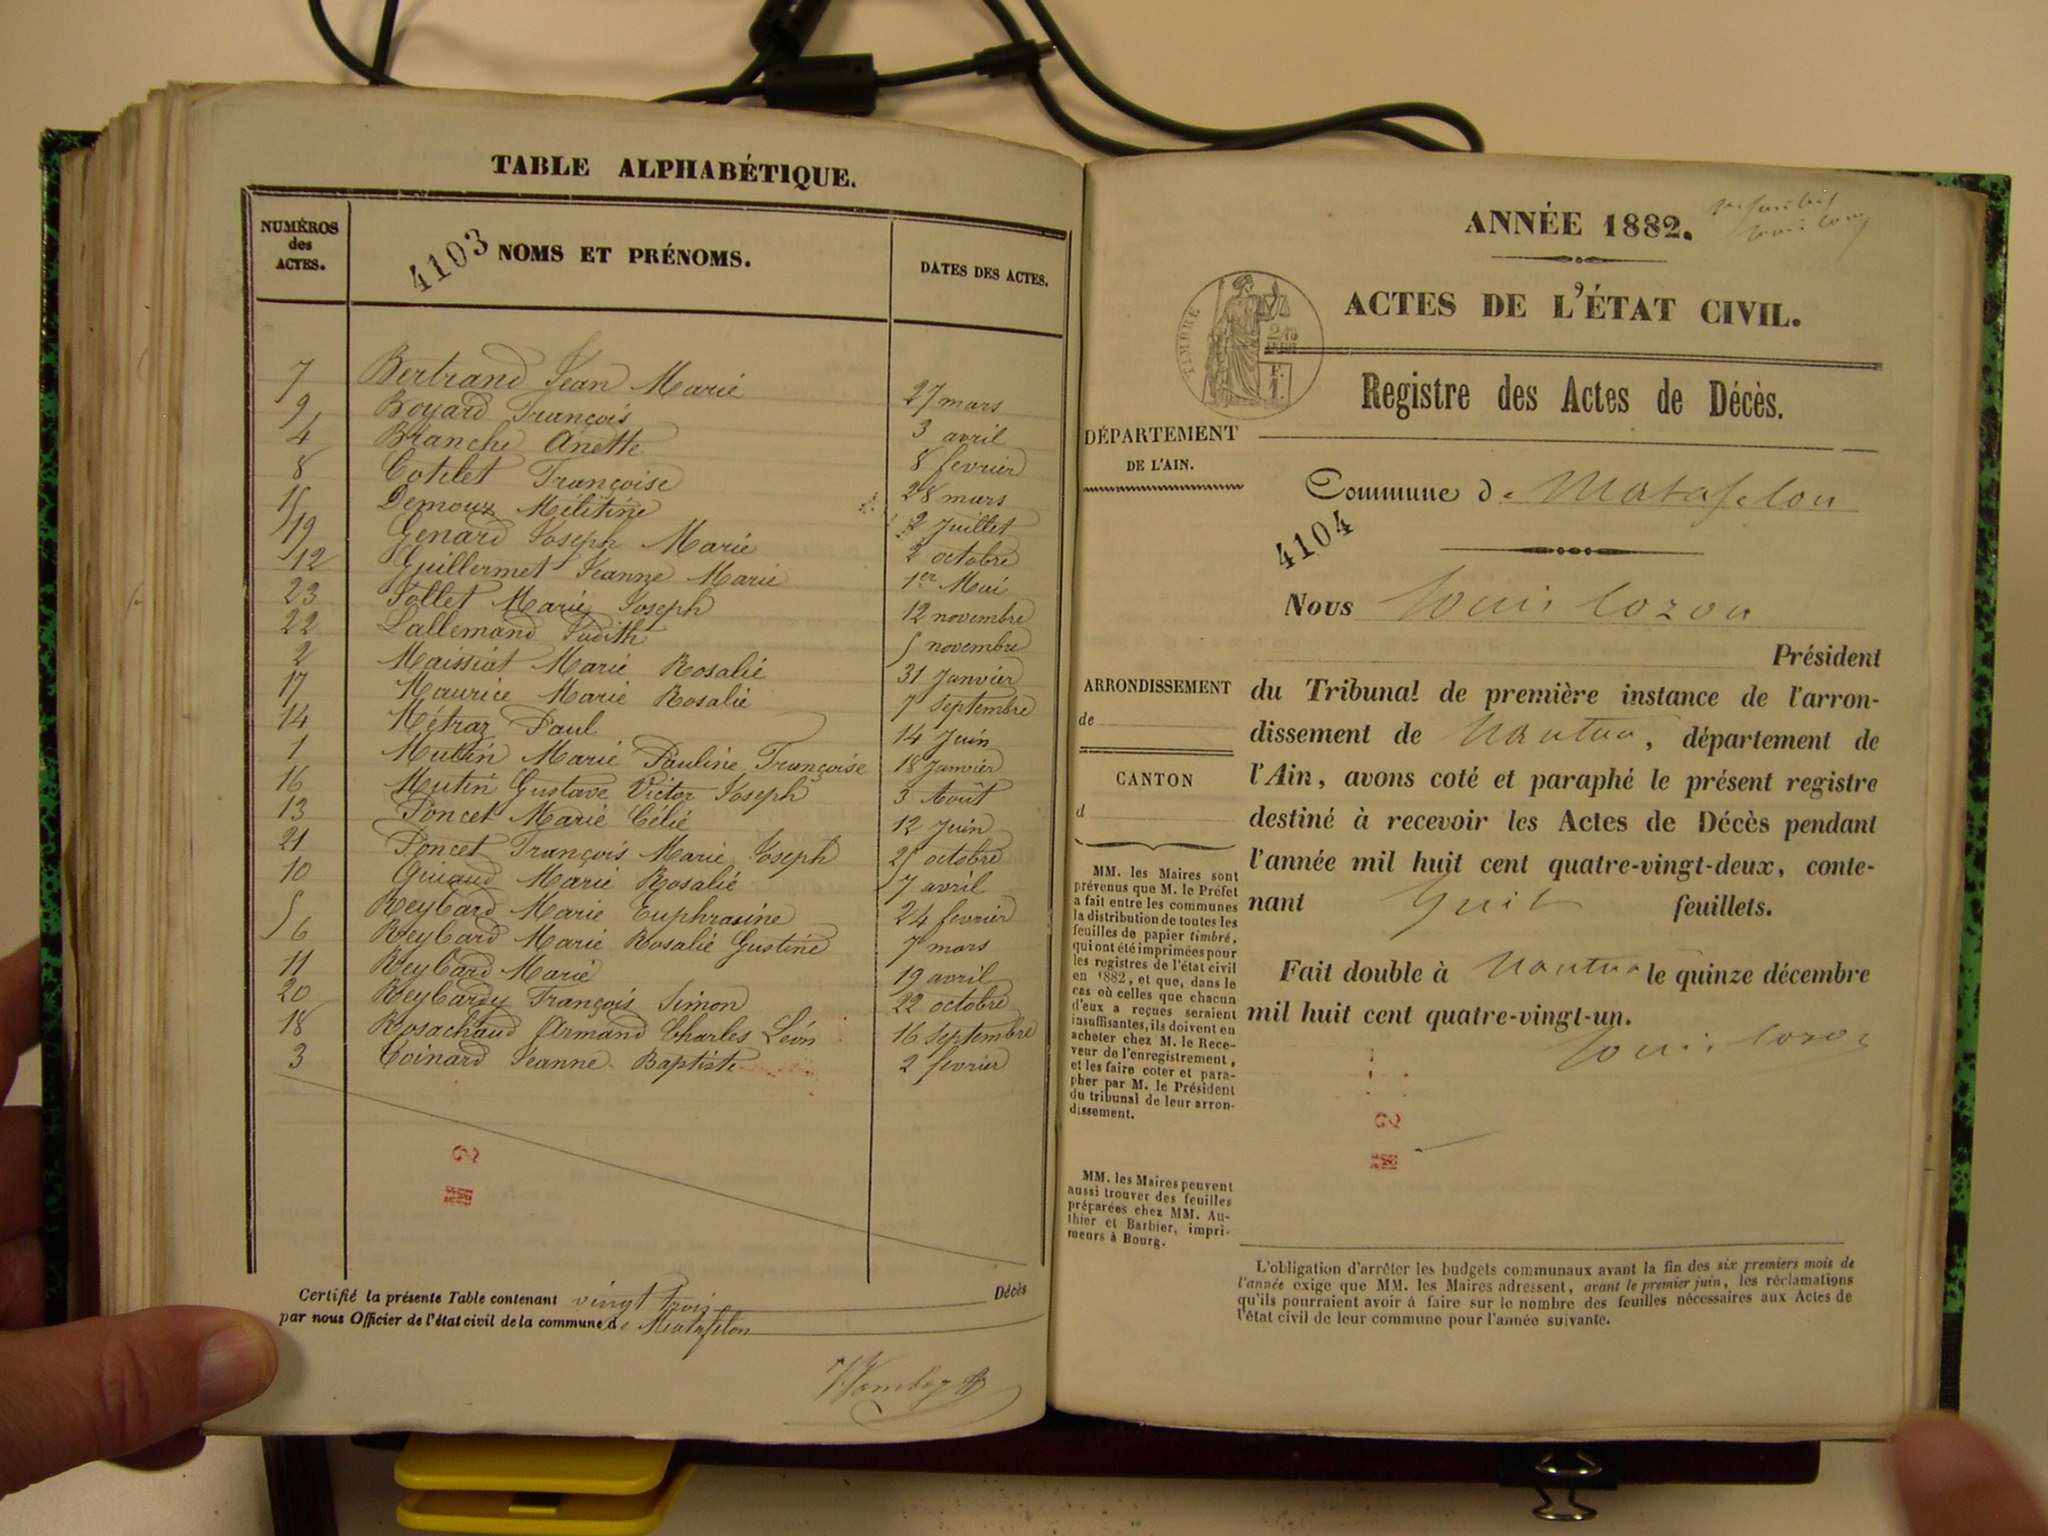 TABLE ALPHABÉTIQUE.
NUMÉROS des ACTES.
4103 NOMS ET PRÉNOMS.
DATES DES ACTES.
7 Bertrand Jean Marie 27 mars
9 Boyard François 3 avril
4 Branche Anette 8 fevrier
8 Cotilet Françoise 28 mars
15 Demoux Mélitine 2 Juillet
19 Genard Joseph Marie 2 octobre
12 Guillermet Jeanne Marie 1er Mai
23 Jollet Marie Joseph 12 novembre
22 Lallemand Judith 5 novembre
2 Maissiat Marie Rosalie 31 Janvier
17 Maurice Marie Rosalie 7 Septembre
14 Métraz Paul 14 Juin
1 Mutin Marie Pauline Françoise 18 Janvier
16 Mutin Gustave Victor Joseph 3 Août
13 Poncet Marie Célie 12 Juin
21 Poncet François Marie Joseph 25 octobre
10 Guiaud Marie Rosalie 7 avril
5 Reybard Marie Euphrasine 24 fevrier
6 Reybard Marie Rosalie Gustine 7 mars
11 Reybard Marie 19 avril
20 Reybardy François Simon 22 octobre
18 Rosachaud Armand Charles Léon 16 Septembre
3 Coinard Jeanne Baptiste 2 fevrier
Certifié la présente Table contenant vingt trois Décès
par nous Officier de l'état civil de la commune de Matafelon
ANNÉE 1882.
ACTES DE L'ÉTAT CIVIL.
TIMBRE
Registre des Actes de Décès.
DÉPARTEMENT
DE L'AIN.
Commune de Matafelon
4104
Nous Louis Cozon
Président
ARRONDISSEMENT
de
CANTON
d
du Tribunal de première instance de l'arron-
dissement de Nantua, département de
l'Ain, avons coté et paraphé le présent registre
destiné à recevoir les Actes de Décès pendant
l'année mil huit cent quatre-vingt-deux, conte-
nant huit feuillets.
Fait double à Nantua le quinze décembre
mil huit cent quatre-vingt-un.
Louis Cozon
MM. les Maires sont
prévenus que M. le Préfet
a fait entre les communes
la distribution de toutes les
feuilles de papier timbré,
qui ont été imprimées pour
les registres de l'état civil
en 1882, et que, dans le
cas où celles que chacun
d'eux a reçues seraient
insuffisantes, ils doivent en
acheter chez M. le Rece-
veur de l'enregistrement,
et les faire coter et para-
pher par M. le Président
du tribunal de leur arron-
dissement.
MM. les Maires peuvent
aussi trouver des feuilles
préparées chez MM. Au-
thier et Barbier, impri-
meurs à Bourg.
L'obligation d'arrêter les budgets communaux avant la fin des six premiers mois de
l'année exige que MM. les Maires adressent, avant le premier juin, les réclamations
qu'ils pourraient avoir à faire sur le nombre des feuilles nécessaires aux Actes de
l'état civil de leur commune pour l'année suivante.